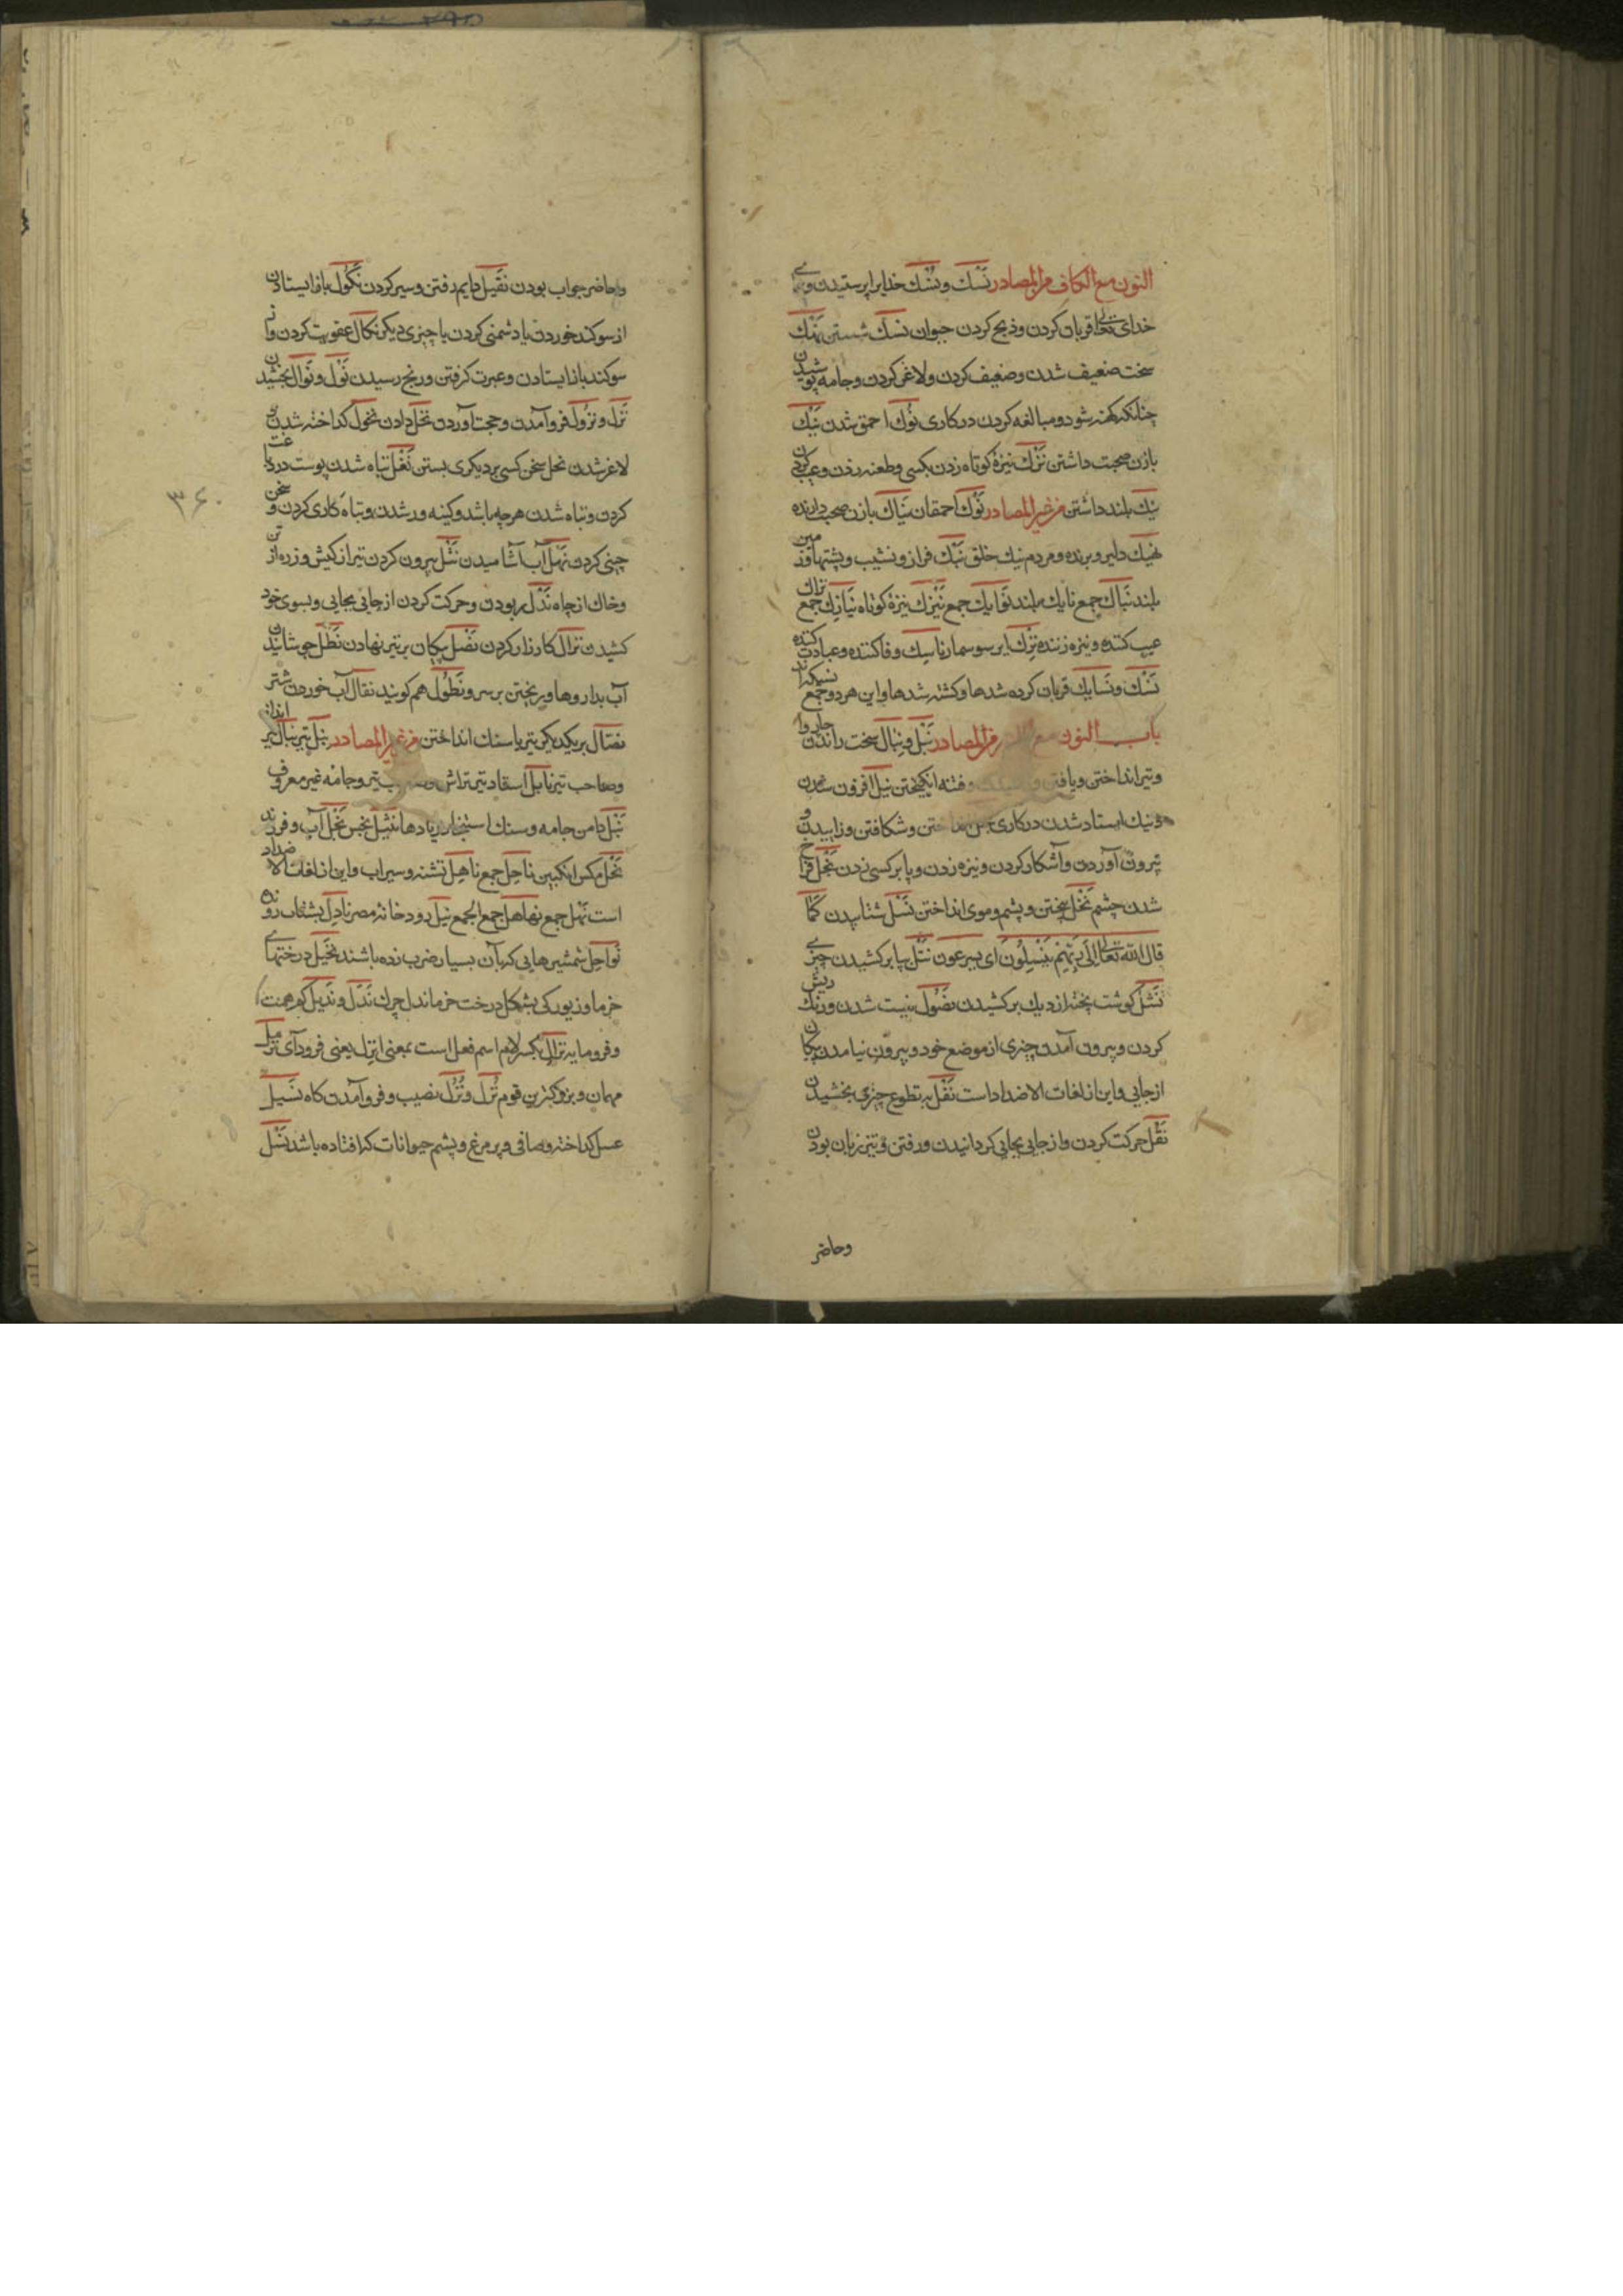 النون مع الکاف من المصادر نَسْك و نُسُك خدایرا پرستیدن و برای
خدای تعالی قربان کردن و ذبح کردن حیوان نسك شستن نَهْك
سخت ضعیف شدن و ضعیف کردن و لاغر کردن و جامه پوشیدن
چنانکه کهنه شود و مبالغه کردن در کاری نُوك احمق شدن نَیْك
با زن صحبت داشتن نَزْك نیزهٔ کوتاه زدن بکسی و طعنه زدن و عیب کردن
بلند داشتن من غیر المصادر نُوك احمقان نَیّاك با زن صحبت دارنده
نَهِیك دلیر و برنده و مردم نیك خلق نَبَك فراز و نشیب و پشتها و زمین
بلند نِباك جمع نابك بلند نوابك جمع نَیْزَك نیزهٔ کوتاه نَیازِك جمع نزّاك
عیب کننده و نیزه زننده نِزْك ایر سوسمار ناسِك وفا کننده و عبادت کننده
نُسُك و نَسایك قربان کرده شدها و کشته شدها و این هر دو جمع نسیکه‌اند
باب النون مع من المصادر نَبْل و نِبال سخت راندن چاروا
و تیر انداختن و یافتن و فتنه انگیختن نیل افزون شدن
و نیك استاد شدن در کاری و شکافتن و زاییدن و
بیرون آوردن و آشکار کردن و نیزه زدن و پا بر کسی زدن نَجَل فراخ
شدن چشم نَخْل بیختن و پشم و موی انداختن نَسْل شتابیدن کَما
قال الله تعالی اِلی رَبِّهِم یَنسِلُونَ ای یسرعون نَتْل پا بر کشیدن چیزی
نَشْل گوشت پخته از دیك بر کشیدن نضُول نیست شدن و رنك ریش
کردن و بیرون آمدن چیزی از موضع خود و بیرون نیامدن پیکان
از جایی و این از لغات الاضداد است نَفْل به تطوع چیزی بخشیدن
نَقْل حرکت کردن و از جایی بجایی گردانیدن و رفتن و تیز زبان بودن
و حاضر
و حاضر جواب بودن نَقیل دایم رفتن و سیر کردن نُکُول باز ایستادن
از سوکند خوردن یا دشمنی کردن یا چیزی دیگر نَکال عقوبت کردن و از
سوکند باز ایستادن و عبرت گرفتن و رنج رسیدن نَوْل و نَوال بخشیدن
نَزْل و نُزُول فرو آمدن و حجت آوردن نَحْل دادن نُحُول گداخته شدن
لاغر شدن نحل سخن کسی بر دیگری بستن نَغَل تباه شدن پوست در دباغت
کردن و تباه شدن هر چه باشد و کینه ور شدن و تباه کاری کردن و سخن
چینی کردن نَهَل آب آشامیدن نَثْل بیرون کردن تیر از کیش و زره از تن
و خاك از چاه نَدْل ربودن و حرکت کردن از جایی بجایی و بسوی خود
کشیدن نِزال کارزار کردن نَصْل پیکان بر تیر نهادن نَطْل جوشانیدن
آب بداروها و ریختن بر سر و نَطُول هم گویند نقال آب خوردن شتر
نضال بر یکدیگر تیر یا سنك انداختن من غیر المصادر نَبْل تیر نَبّال تیر انداز
و صاحب تیر نابل استاد تیر تراش تیر و جامه غیر معروف
نَبَل دامن جامه و سنك استنجا نَثیل نجس نَجْل آب و فرزند
نَحْل مکس انکبین ناحِل جمع ناهِل تشنه و سیراب و این از لغات الاضداد
است نَهَل جمع نِهال جمع الجمع نیل رودخانه مصر نادِل بشتاب رونده
نَواحِل شمشیرهایی که بآن بسیار ضرب زده باشند نَخیل درختهای
خرما و زیوری بشکل درخت خرما نَدْل چرك نَذْل و نَذیل کم همت
و فرومایه نَزالِ بکسر لام اسم فعل است بمعنی انزل یعنی فرود آی نَزیل
مهمان و بزرکترین قوم نُزْل و نُزُل نصیب و فرو آمدن کاه نَسیل
عسل گداخته و صافی و پر مرغ و پشم حیوانات که افتاده باشد نَسْل
۳۶۰